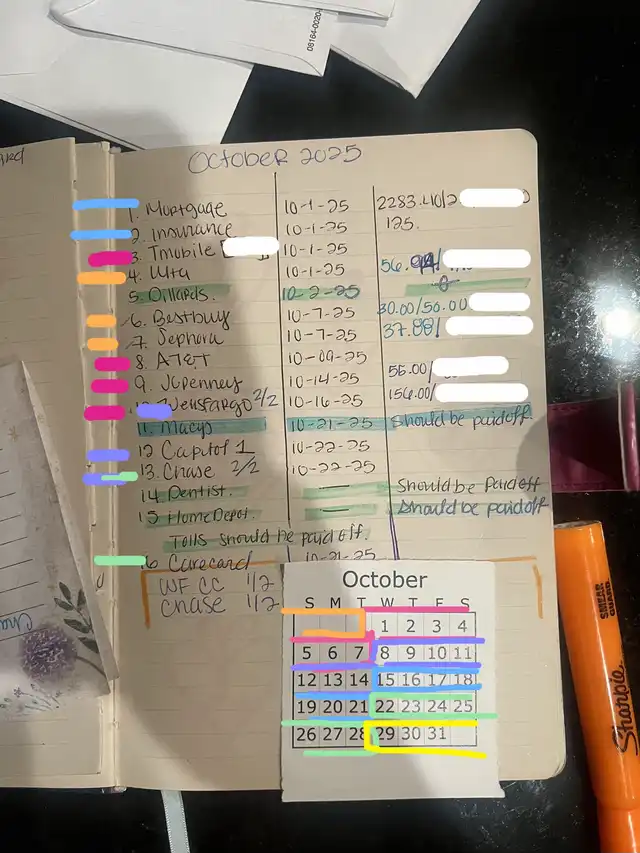 08164-0020-
ard
OCTOBER 2025
1. Mortgage 10-1-25 2283.40/2
2. Insurance 10-1-25 125.
3. Tmobile 10-1-25
4. Ulta 10-1-25 56.
5. Dillards. 10-2-25
6. Bestbuy 10-7-25 30.00/50.00
7. Sephora 10-7-25 37.
8. AT&T 10-09-25 55.00/
9. JCpenney 10-14-25 156.00/
10. Wellsfargo 2/2 10-16-25
11. Macys 10-21-25 Should be paidoff.
12 Capitol 1 10-22-25
13. Chase 2/2 10-22-25
14 Dentist. — Should be Paidoff
15 HomeDepot. — Should be paidoff
Tolls should be paid off.
16 Carecard 10-21-25
WF CC 1/2
Chase 1/2
October
S M T W T F S
1 2 3 4
5 6 7 8 9 10 11
12 13 14 15 16 17 18
19 20 21 22 23 24 25
26 27 28 29 30 31
SMEAR GUARD
Sharpie